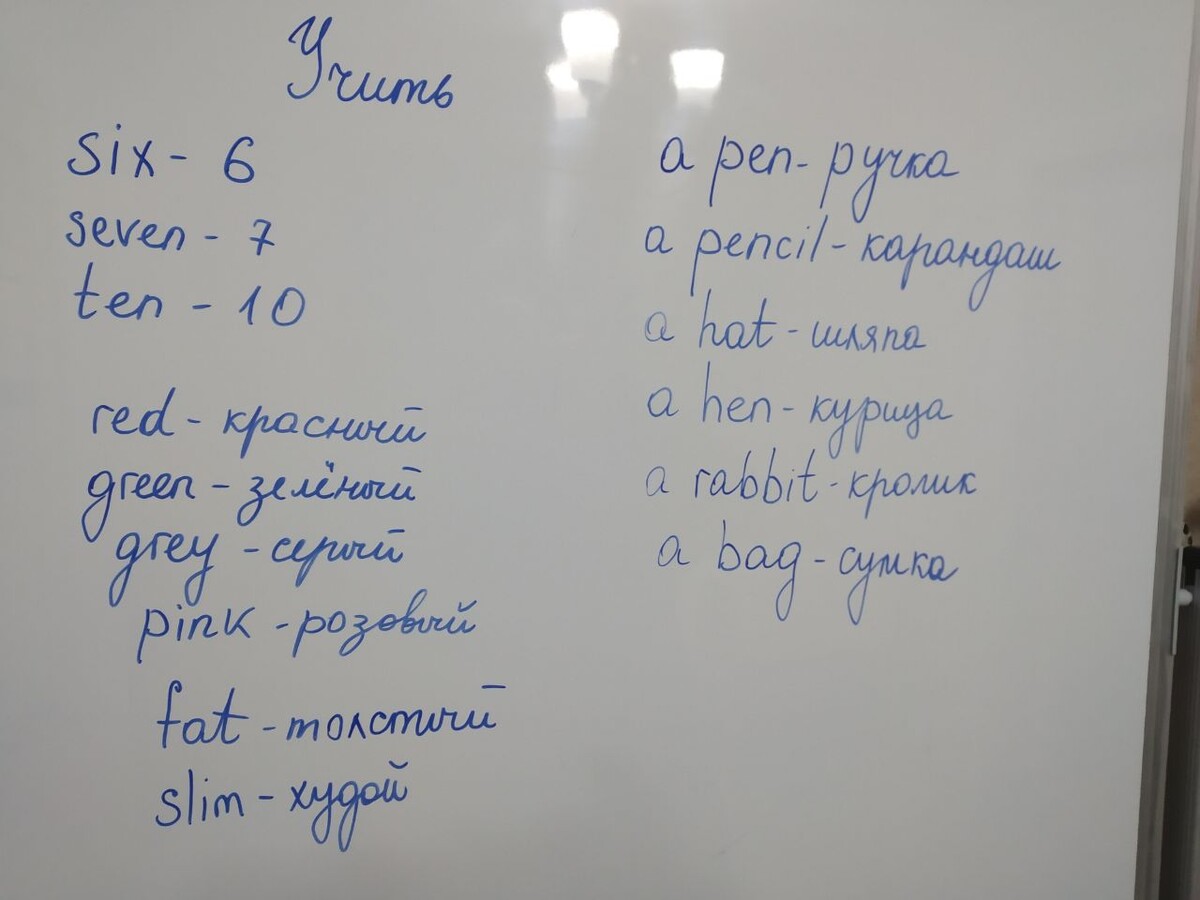 Учить
six - 6
seven - 7
ten - 10
red - красный
green - зелёный
grey - серый
pink - розовый
fat - толстый
slim - худой
a pen - ручка
a pencil - карандаш
a hat - шляпа
a hen - курица
a rabbit - кролик
a bag - сумка